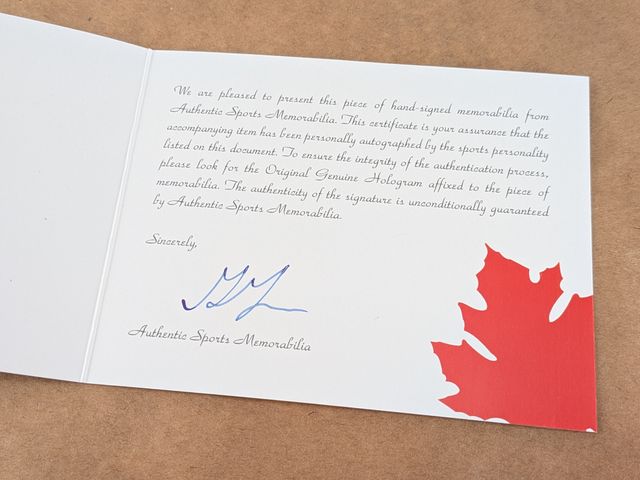 We are pleased to present this piece of hand-signed memorabilia from
Authentic Sports Memorabilia. This certificate is your assurance that the
accompanying item has been personally autographed by the sports personality
listed on this document. To ensure the integrity of the authentication process,
please look for the Original Genuine Hologram affixed to the piece of
memorabilia. The authenticity of the signature is unconditionally guaranteed
by Authentic Sports Memorabilia.
Sincerely,
Authentic Sports Memorabilia